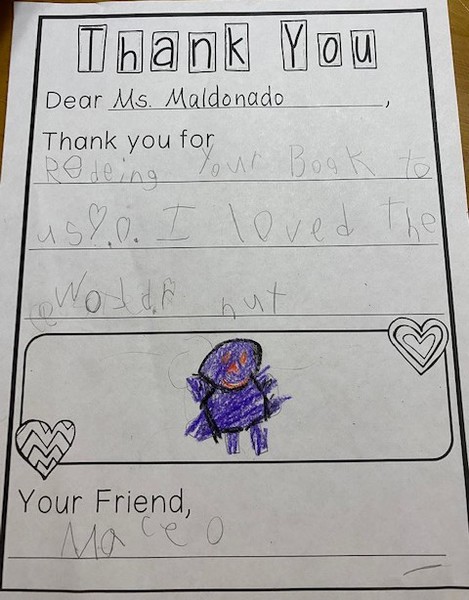 Thank You
Dear Ms. Maldonado,
Thank you for
Redeing Your Book to
us♡.o. I loved The
nut
Your Friend,
Maceo